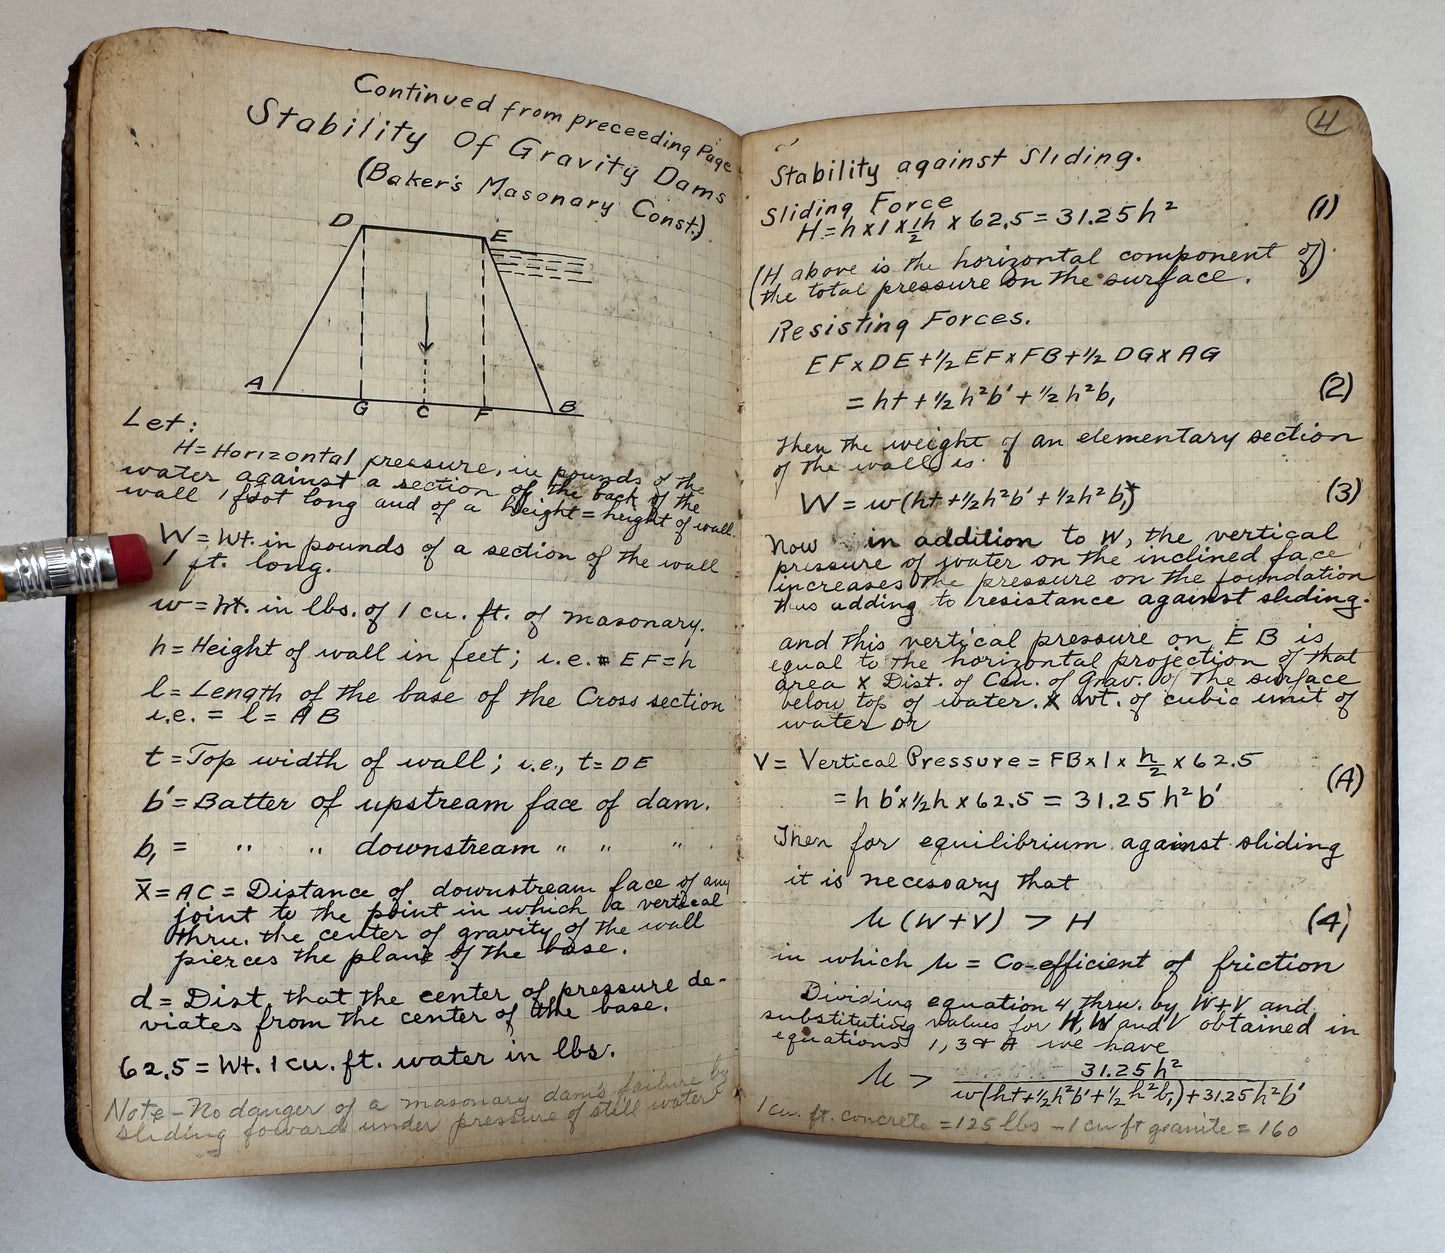 Continued from preceeding Page
Stability Of Gravity Dams
(Baker's Masonary Const.)
D E
A G C F B
Let:
H = Horizontal pressure, in pounds of the
water against a section of the back of the
wall 1 foot long and of a height = height of wall.
W = Wt. in pounds of a section of the wall
1 ft. long.
w = wt. in lbs. of 1 cu. ft. of masonary.
h = Height of wall in feet; i.e. EF = h
l = Length of the base of the Cross section
i.e. = l = AB
t = Top width of wall; i.e., t = DE
b' = Batter of upstream face of dam.
b₁ = " " downstream " " "
x̄ = AC = Distance of downstream face of any
joint to the point in which a vertical
thru. the center of gravity of the wall
pierces the plane of the base.
d = Dist. that the center of pressure de-
viates from the center of the base.
62.5 = Wt. 1 cu. ft. water in lbs.
Note - No danger of a masonary dams failure by
sliding forward under pressure of still water
4
Stability against Sliding.
Sliding Force
H = h x 1 x ½h x 62.5 = 31.25 h² (1)
(H above is the horizontal component of)
the total pressure on the surface.
Resisting Forces.
EF x DE + ½ EF x FB + ½ DG x AG
= ht + ½ h²b' + ½ h²b₁ (2)
Then the weight of an elementary section
of the wall is
W = w(ht + ½h²b' + ½h²b₁) (3)
Now in addition to W, the vertical
pressure of water on the inclined face
increases the pressure on the foundation
thus adding to resistance against sliding.
and this vertical pressure on EB is
equal to the horizontal projection of that
area x Dist. of Cen. of Grav. of the surface
below top of water. x wt. of cubic unit of
water or
V = Vertical Pressure = FB x 1 x h/2 x 62.5
= h b' x ½h x 62.5 = 31.25 h² b' (A)
Then for equilibrium against sliding
it is necessary that
μ (W + V) > H (4)
in which μ = Co-efficient of friction
Dividing equation 4 thru. by W+V and
substituting values for H, W and V obtained in
equations 1, 3 & A we have
μ > 31.25 h² / w(ht + ½h²b' + ½h²b₁) + 31.25 h²b'
1 cu. ft. concrete = 125 lbs - 1 cu ft granite = 160